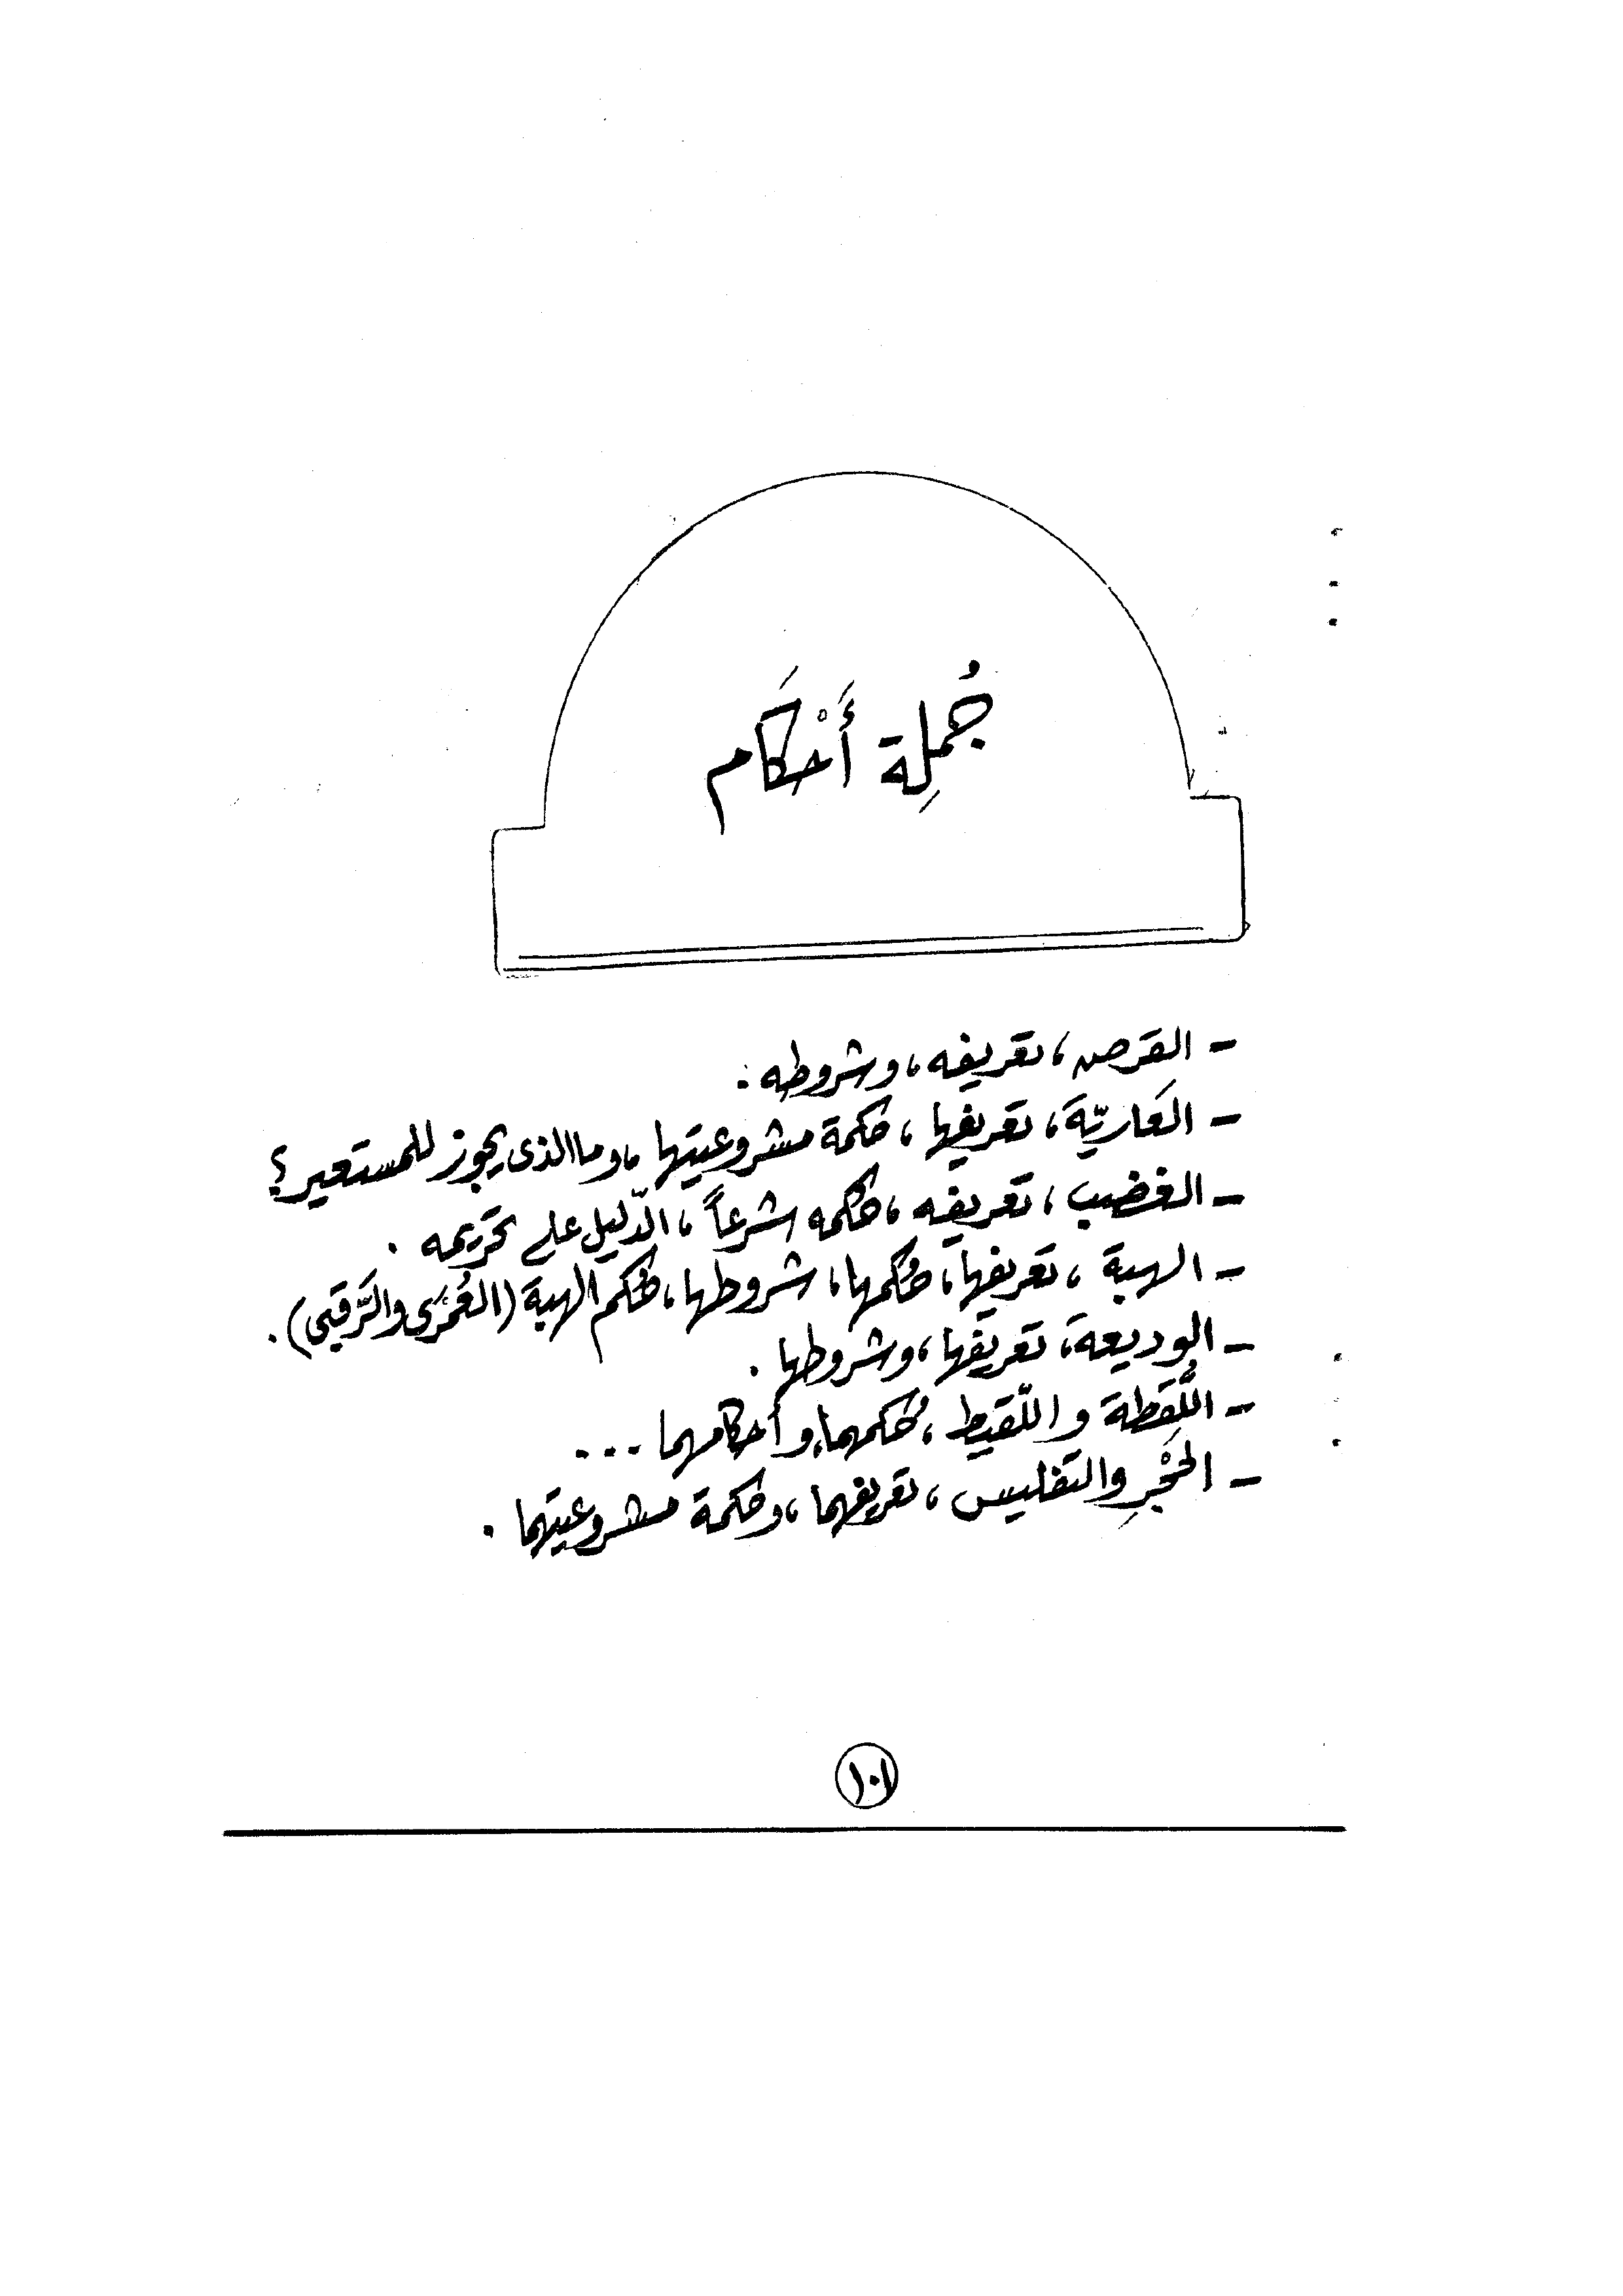 جُملِة أَحْكَام
- القرض، تعريفه، وشروطه.
- العَاريّة، تعريفها، حكمة مشروعيتها، وما الذى يجوز للمستعير؟
- الغضب، تعريفه، حكمه شرعاً، الدّليل على تحريمه.
- الهبة، تعريفها، حُكمها، شروطها، حُكم الهبة (العُمْرَى والرَّقبى).
- الوديعة، تعريفها، وشروطها.
- اللُّقَطة واللّقيط، حُكمهما، وأحكامهما ...
- الحَجْرِ والتفليس، تعريفهما، وحكمة مشروعيتهما.
١٠١